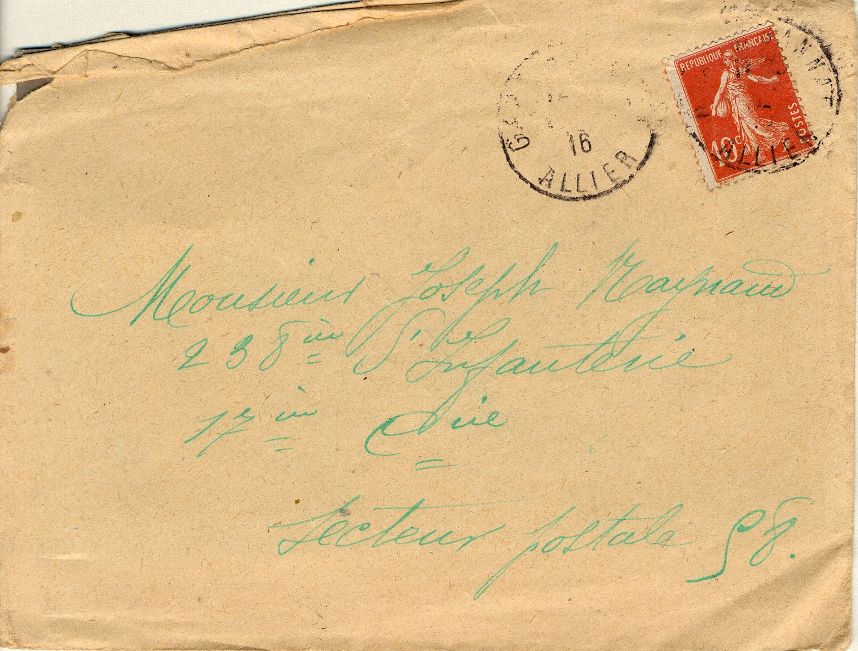 16
ALLIER
REPUBLIQUE FRANCAISE
10c
POSTES
ANNAT
ALLIER
Monsieur Joseph Raynaud
238 ème d'Infanterie
17 ème Cie
Secteur postale 98.